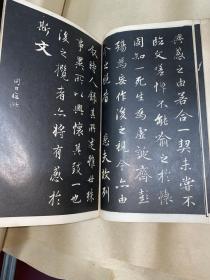 興感之由若合一契未嘗不
臨文嗟悼不能喻之於懷
固知一死生為虛誕齊彭
殤為妄作後之視今亦由
今之視昔悲夫故列
敘時人錄其所述雖世殊
事異所以興懷其致一也
後之攬者亦將有感於
斯文